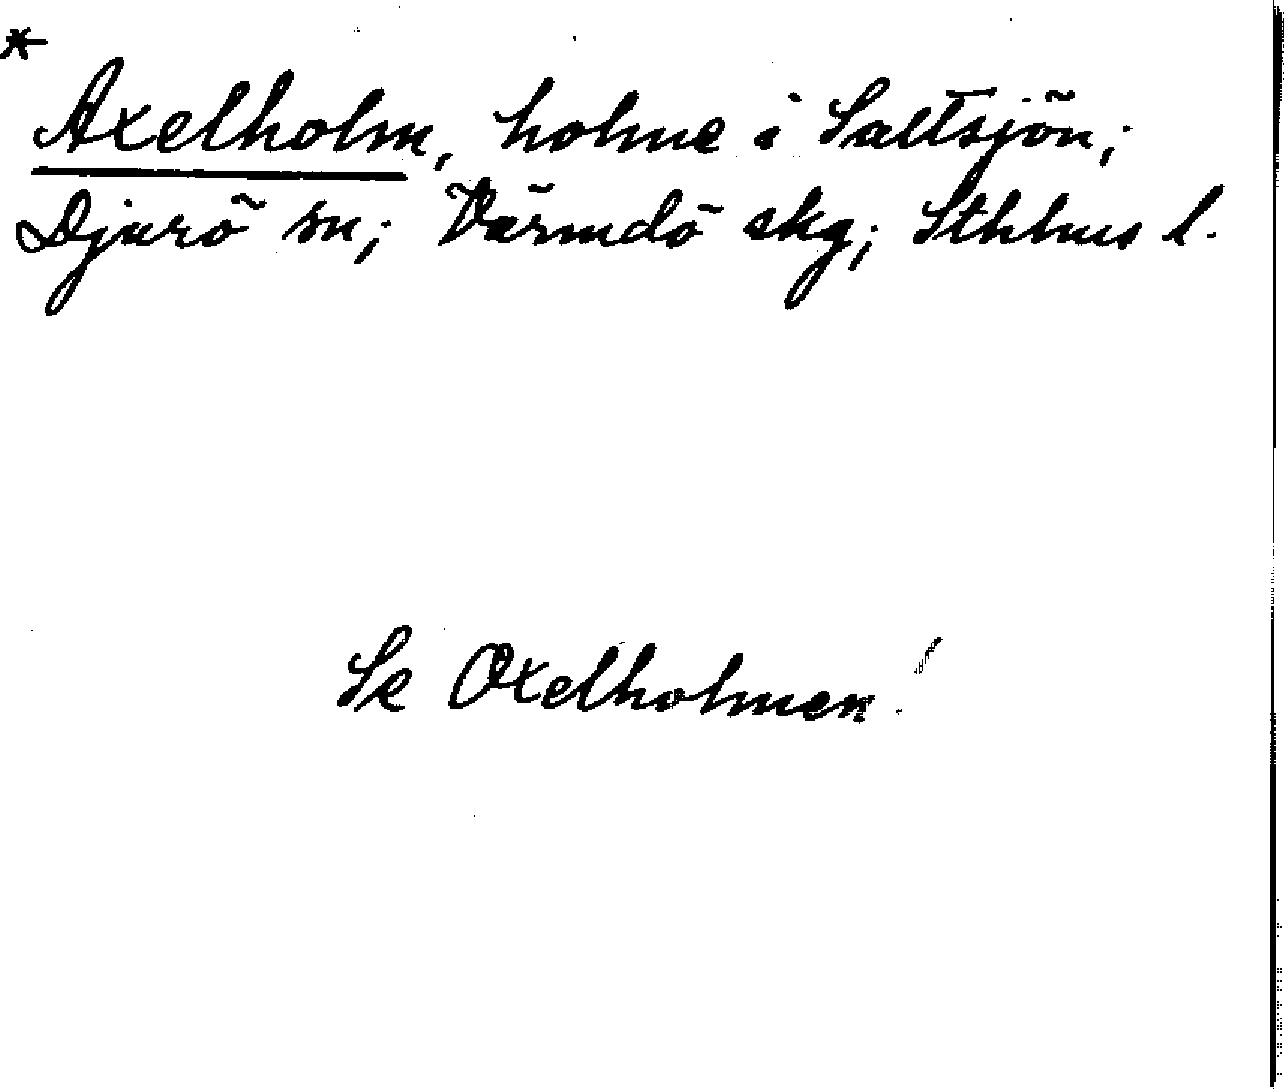 *
Axelholm, holme i Saltsjön;
Djurö sn; Värmdö skg; Sthlms l.
Se Oxelholmen!